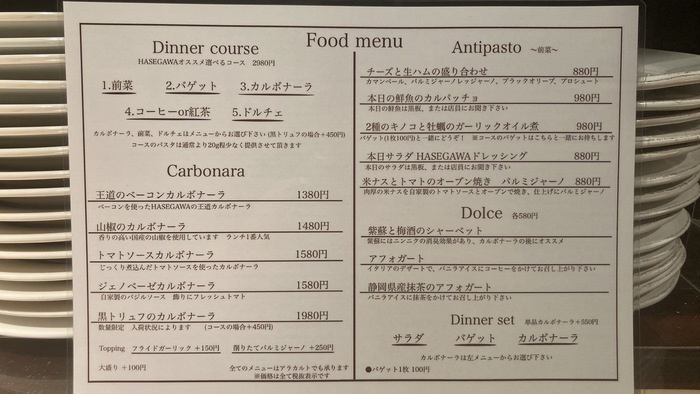 Food menu
Dinner course
HASEGAWAオススメ選べるコース　2980円
1.前菜　2.バゲット　3.カルボナーラ
4.コーヒーor紅茶　5.ドルチェ
カルボナーラ、前菜、ドルチェはメニューからお選び下さい(黒トリュフの場合+450円)
コースのパスタは通常より20g程少なく提供させて頂きます
Carbonara
王道のベーコンカルボナーラ　1380円
ベーコンを使ったHASEGAWAの王道カルボナーラ
山椒のカルボナーラ　1480円
香りの高い国産の山椒を使用しています　ランチ1番人気
トマトソースカルボナーラ　1580円
じっくり煮込んだトマトソースを使ったカルボナーラ
ジェノベーゼカルボナーラ　1580円
自家製のバジルソース　飾りにフレッシュトマト
黒トリュフのカルボナーラ　1980円
数量限定　入荷状況によります　(コースの場合+450円)
Topping　フライドガーリック +150円　削りたてパルミジャーノ +250円
大盛り +100円　全てのメニューはアラカルトでも承ります
※価格は全て税抜表示です
Antipasto　～前菜～
チーズと生ハムの盛り合わせ　880円
カマンベール、パルミジャーノレッジャーノ、ブラックオリーブ、プロシュート
本日の鮮魚のカルパッチョ　980円
本日の鮮魚は黒板、または店員にお聞き下さい
2種のキノコと牡蠣のガーリックオイル煮　980円
バゲット(1枚100円)と一緒にどうぞ！　※コースのバゲットはこちらと一緒にお持ちします
本日サラダ HASEGAWAドレッシング　880円
本日のサラダは黒板、または店員にお聞き下さい
米ナスとトマトのオーブン焼き　パルミジャーノ　880円
肉厚の米ナスを自家製のトマトソースとオーブンで焼き、仕上げにパルミジャーノ
Dolce　各580円
紫蘇と梅酒のシャーベット
紫蘇にはニンニクの消臭効果があり、カルボナーラの後にオススメ
アフォガート
イタリアのデザートで、バニラアイスにコーヒーをかけてお召し上がり下さい
静岡県産抹茶のアフォガート
バニラアイスに抹茶をかけてお召し上がり下さい
Dinner set　単品カルボナーラ+550円
サラダ　バゲット　カルボナーラ
カルボナーラは左メニューからお選び下さい
●バゲット1枚 100円